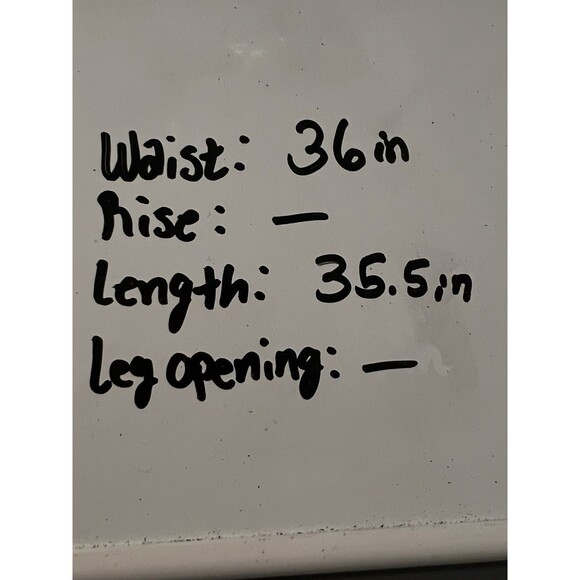 Waist: 36 in
Rise: —
Length: 35.5 in
Leg opening: —